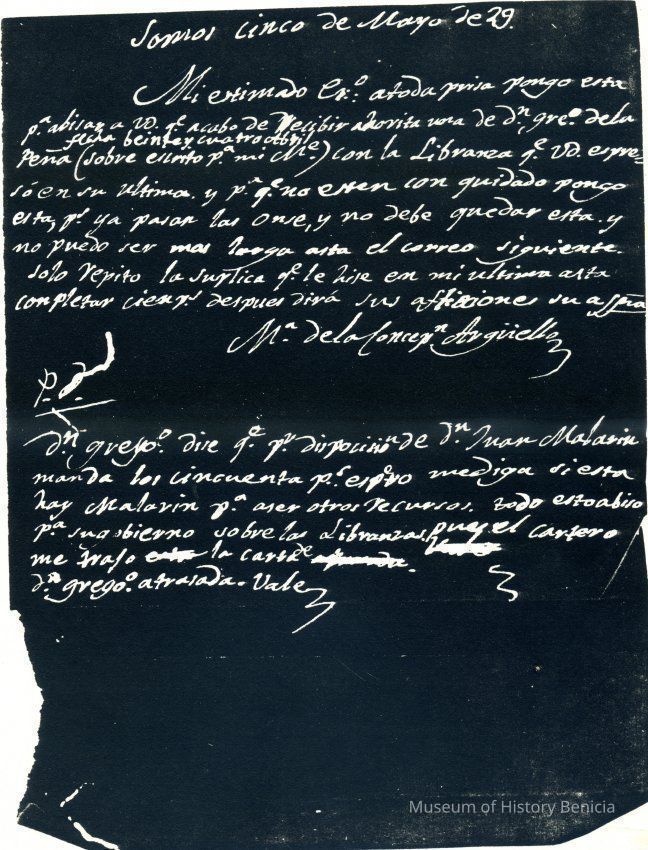 Somos cinco de Mayo de 29.
Mi estimado Er.º atoda prisa pongo esta
p.ª abisar a VD. q.e acabo de recibir ahorita una de d.n greg.º dela
fcha beinteycuatro Abril
Peña (sobre escrito p.ª mi M.e) con la Libranza q.e VD. espre-
só en su ultima. y p.ª q.e no esten con quidado pongo
esta, p.s ya pasan las onse, y no debe quedar esta. y
no puedo ser mas larga asta el correo siguiente.
solo repito la suplica q.e le hise en mi ultima asta
completar cien p.s despues dirá sus afliciones su a
M.ª dela Concep.n Argüello
P.D.
D.n grego.º dise q.e p.r disposición de D.n Juan Malarin
manda los cincuenta p.s espero mediga si esta
hay Malarin p.ª aser otros recursos. todo esto abiso
p.ª su gobierno sobre las Libranzas pues el cartero
me trajo la carta de
d.n grego.º atrasada. Vale
Museum of History Benicia